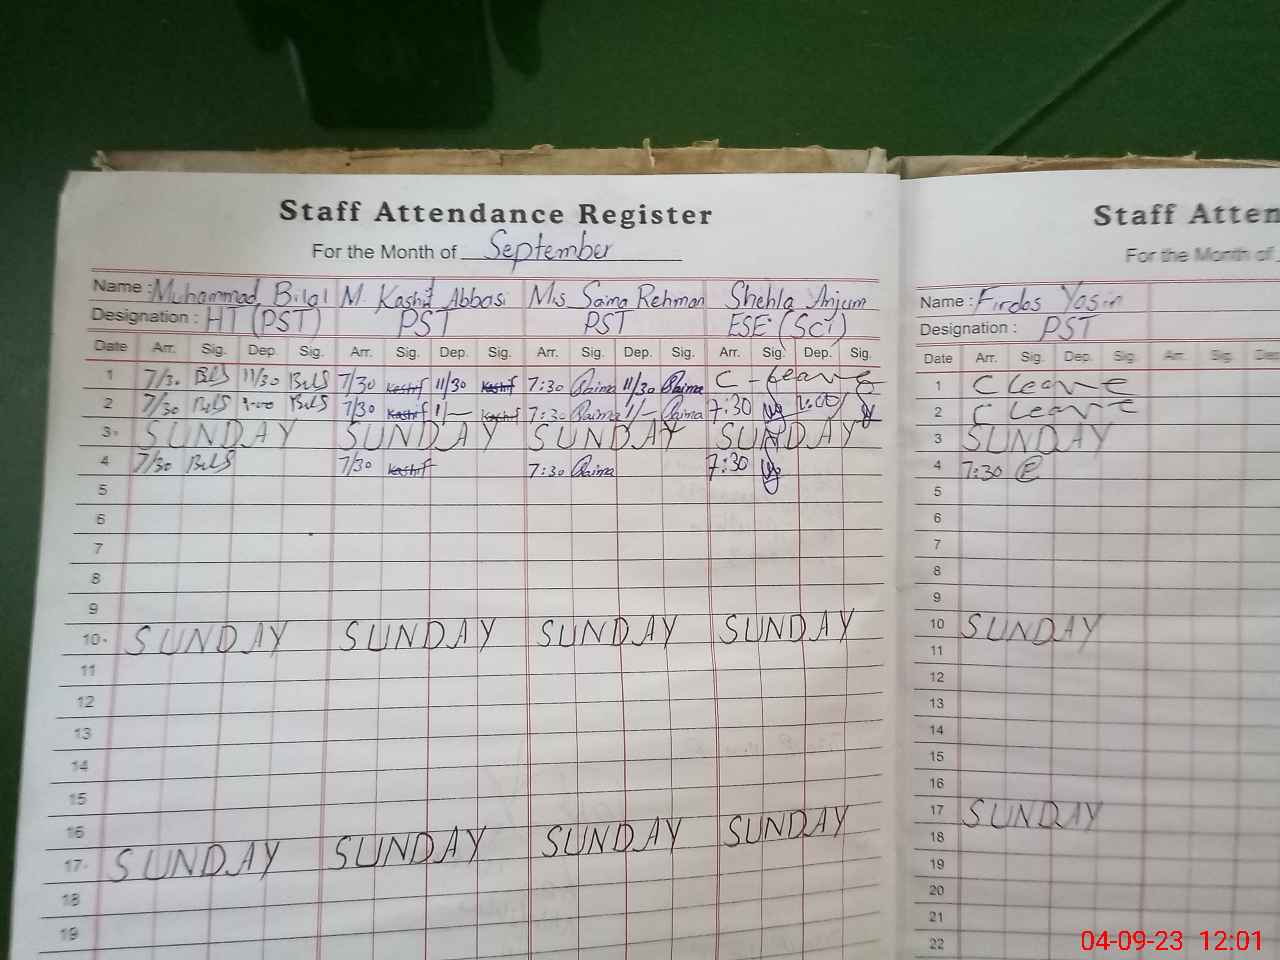 Staff Attendance Register
For the Month of September
Name : Muhammad Bilal M. Kashif Abbasi Mis Saima Rehman Shehla Anjum
Designation : HT (PST) PST PST ESE (Sci)
Date Arr. Sig. Dep. Sig. Arr. Sig. Dep. Sig. Arr. Sig. Dep. Sig. Arr. Sig. Dep. Sig.
1 7/30 11/30 7/30 Kashif 11/30 Kashif 7:30 Saima 11/30 Saima C - Leave
2 7/30 7/30 Kashif 11/— Kashif 7:30 Saima 11/— Saima 7:30
3 SUNDAY SUNDAY SUNDAY SUNDAY
4 7/30 7/30 Kashif 7:30 Saima 7:30
5
6
7
8
9
10 SUNDAY SUNDAY SUNDAY SUNDAY
11
12
13
14
15
16
17 SUNDAY SUNDAY SUNDAY SUNDAY
18
19
Staff Atten
For the Month of
Name : Firdos Yasin
Designation : PST
Date Arr. Sig. Dep. Sig. Arr. Sig. Dep
1 C Leave
2 C Leave
3 SUNDAY
4 7:30
5
6
7
8
9
10 SUNDAY
11
12
13
14
15
16
17 SUNDAY
18
19
20
21
22
04-09-23 12:01